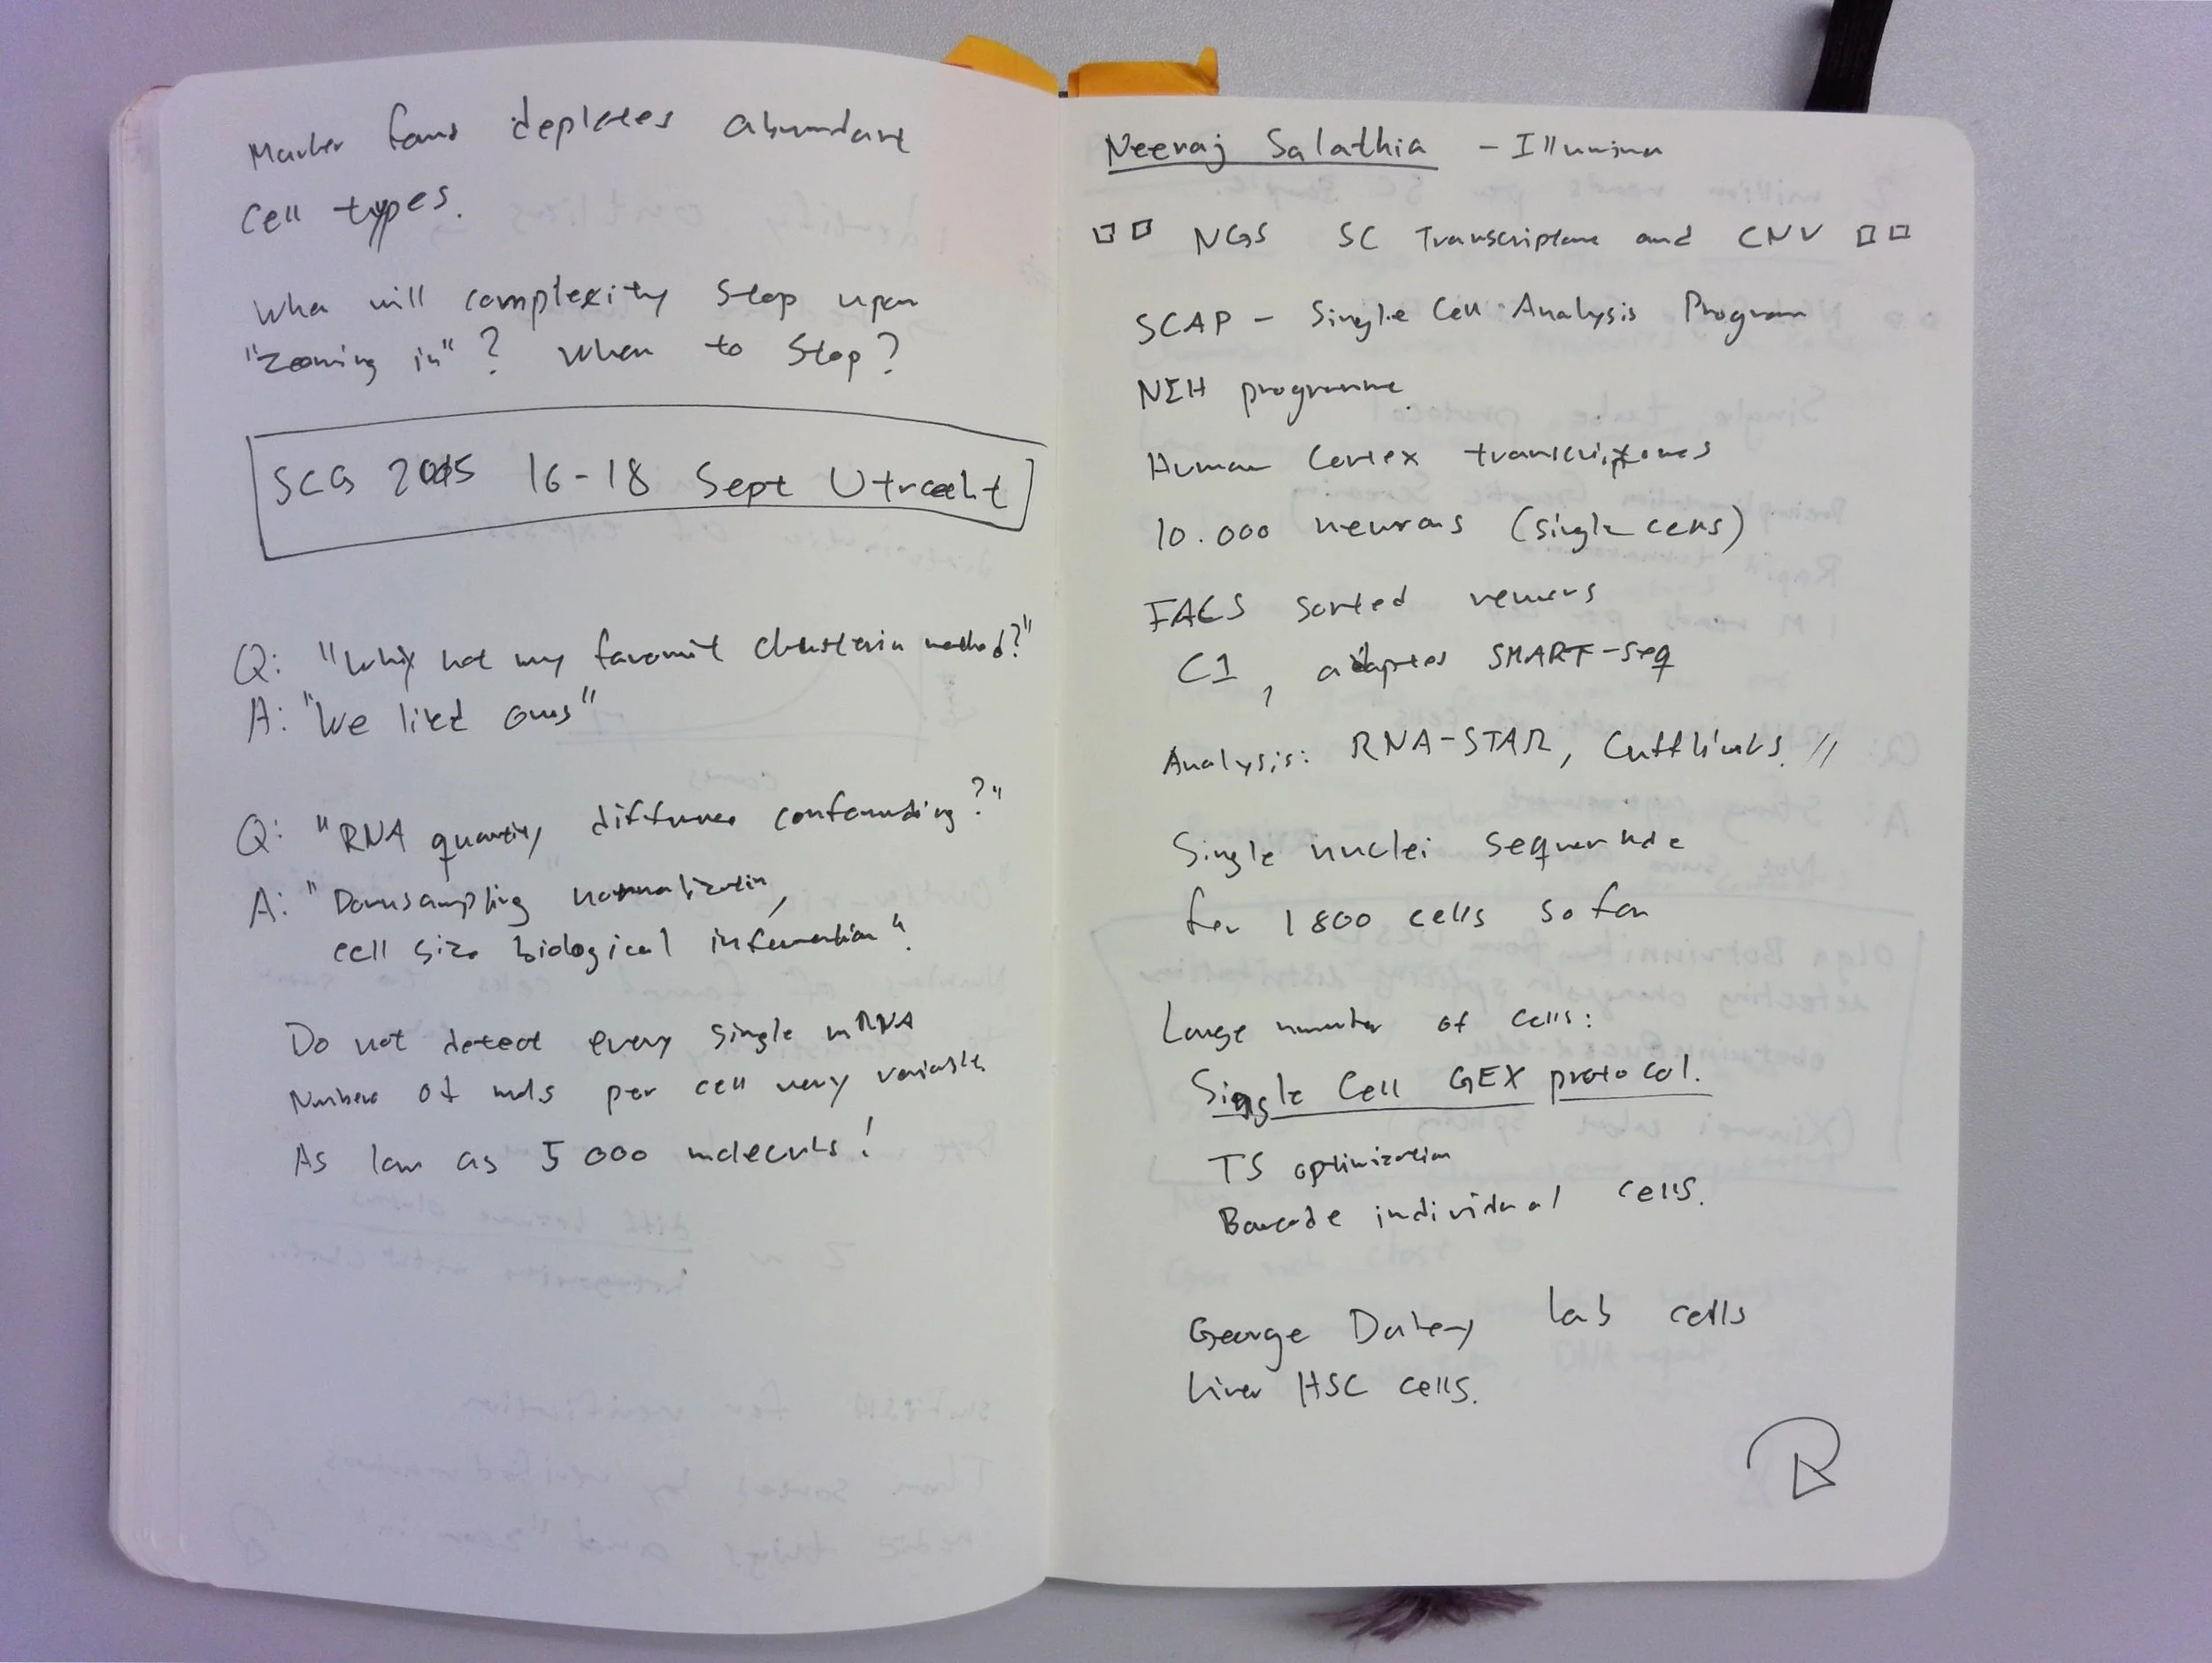 Marker depletes abundant
cell types.
When will complexity stop upon
"zooming in"? When to stop?
SCG 2015 16-18 Sept Utrecht
Q: "Why not my favorite clustering method?"
A: "We liked ours"
Q: "RNA quantity difference confounding?"
A: "Downsampling normalization,
cell size biological information".
Do not detect every single mRNA
Number of mols per cell very variable
As low as 5 000 molecules!
Neeraj Salathia - Illumina
NGS SC Transcriptome and CNV
SCAP - Single Cell Analysis Program
NIH programme.
Human Cortex transcriptomes
10.000 neurons (single cells)
FACS sorted
C1, adapted SMART-seq
Analysis: RNA-STAR, Cufflinks. //
Single nuclei
for 1800 cells so far
Large number of cells:
Single Cell GEX protocol.
TS optimization
Barcode individual cells.
George Daley lab cells
Liver HSC cells.